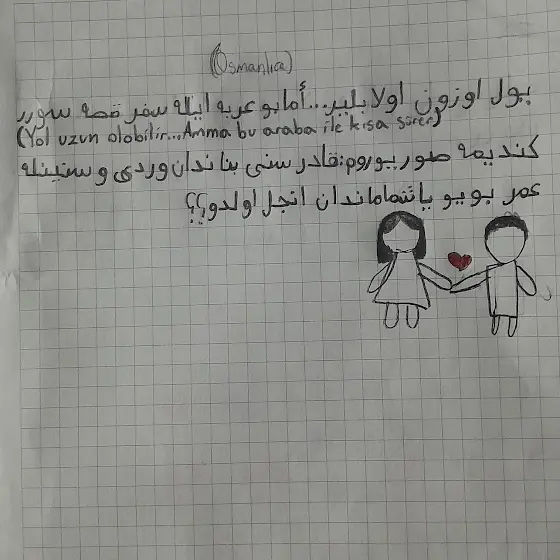 (Osmanlıca)
يول اوزون اولابلير...أمابو عربه ايله سفر قصه سورر
(Yol uzun olabilir...Amma bu araba ile kısa sürer)
كنديمه صوريوروم:قادر سنى بنا ندان وردى و سنينله
عمر بويو ياشاماماندان انجل اولدو؟؟